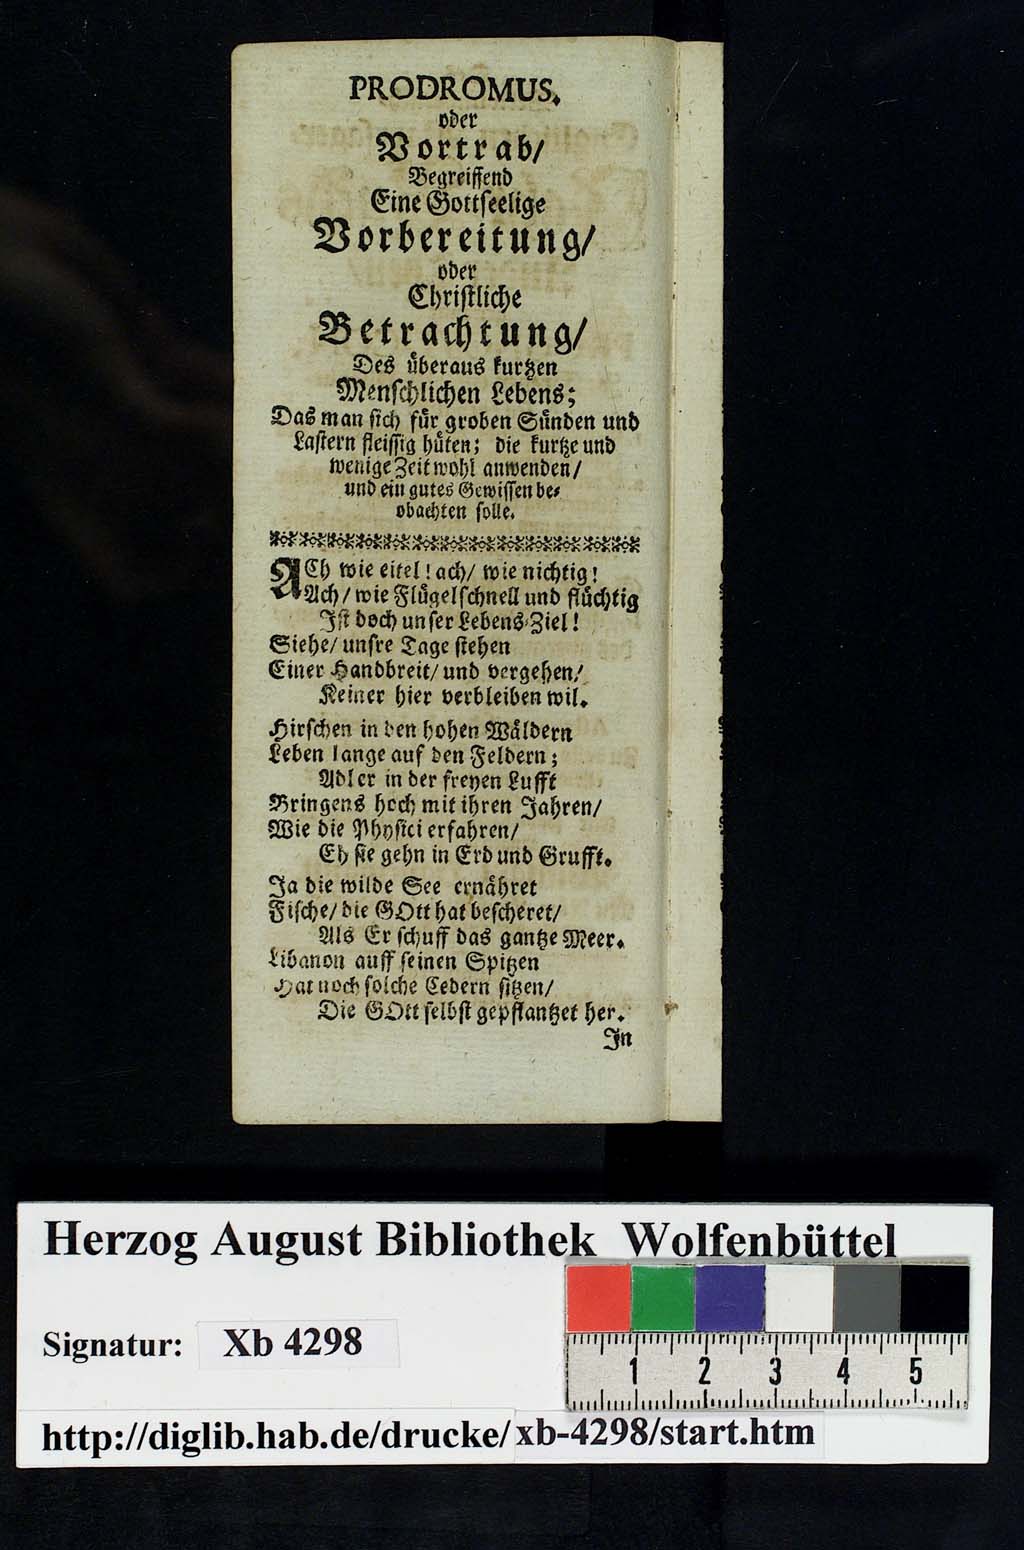 PRODROMUS.
oder
Vortrab/
Begreiffend
Eine Gottseelige
Vorbereitung/
oder
Christliche
Betrachtung/
Des überaus kurtzen
Menschlichen Lebens;
Das man sich für groben Sünden und
Lastern fleissig hüten; die kurtze und
wenige Zeit wohl anwenden/
und ein gutes Gewissen be-
obachten solle.
ACh wie eitel! ach/ wie nichtig!
Ach/ wie Flügelschnell und flüchtig
Ist doch unser Lebens-Ziel!
Siehe/ unsre Tage stehen
Einer Handbreit/ und vergehen/
Keiner hier verbleiben wil.
Hirschen in den hohen Wäldern
Leben lange auf den Feldern;
Adler in der freyen Lufft
Bringens hoch mit ihren Jahren/
Wie die Physici erfahren/
Eh sie gehn in Erd und Grufft.
Ja die wilde See ernähret
Fische/ die GOtt hat bescheret/
Als Er schuff das gantze Meer.
Libanon auff seinen Spitzen
Hat noch solche Cedern sitzen/
Die GOtt selbst gepflantzet her.
In
Herzog August Bibliothek Wolfenbüttel
Signatur: Xb 4298
1 2 3 4 5
http://diglib.hab.de/drucke/xb-4298/start.htm